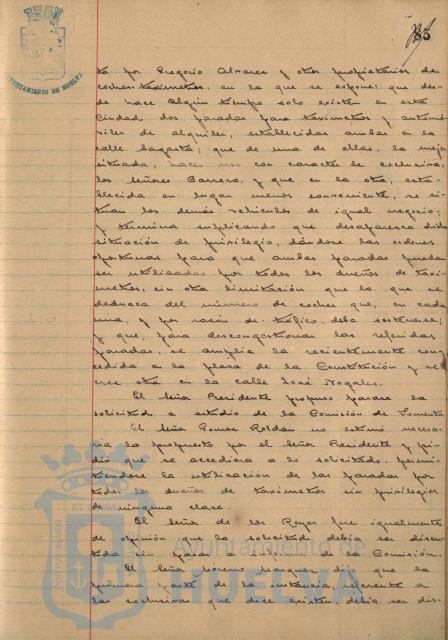 85
AYUNTAMIENTO DE HUELVA
ta por Gregorio Alvarez y otros propietarios de
coches taximetros, en la que se expone: que des-
de hace algún tiempo solo existen en esta
Ciudad dos paradas para taximetros y automó-
viles de alquiler, establecidas ambas en la
calle Sagasta; que de una de ellas, la mejor
situada, hacen uso con caracter de exclusiva,
los señores Barrero, y que en la otra, esta-
blecida en lugar menos conveniente, se si-
tuan los demás vehículos de igual negocio;
y termina suplicando que desaparezca dicha
situación de privilegio, dándose las ordenes
oportunas para que ambas paradas puedan
ser utilizadas por todos los dueños de taxi-
metros, sin otra limitación que la que se
deduzca del número de coches que, en cada
una, y por razón de tráfico, deba sostenerse;
y que, para descongestionar las referidas
paradas, se amplíe la recientemente con-
cedida en la plaza de la Constitución y se
cree otra en la calle José Nogales.
El Señor Presidente propuso pasase la
solicitud a estudio de la Comisión de Fomento
El Señor Gomez Roldán no estimó necesa-
ria la propuesta por el Señor Presidente y pi-
dió que se accediera a lo solicitado, permi-
tiendose la utilización de las paradas por
todos los dueños de taximetros sin privilegios
de ninguna clase.
El Señor de los Reyes fue igualmente
de opinión que la solicitud debía ser discu-
tida sin pasar a informe de la Comisión.
El Señor Moreno Marquez dijo que la
primera parte de la instancia, referente a
las exclusivas que dice existen, debía ser dis-
Ayuntamiento de
HUELVA